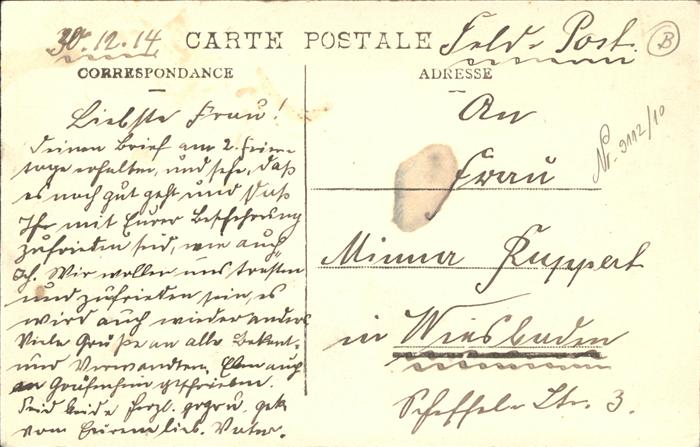 30.12.14 CARTE POSTALE Feld-Post. B
CORRESPONDANCE
Liebste Frau!
Deinen Brief am 2. Feier-
tage erhalten, und sehe, daß
es noch gut geht und daß
Ihr mit Eurer Bescherung
zufrieden seid, wie auch
ich. Wir wollen uns trösten
und zufrieden sein, es
wird auch wieder anders.
Viele Grüße an alle Bekannt-
und Verwandten. Eben auch
an geschrieben.
Seid beide herzl. gegrü. gek.
vom Eurem lieb. Vater.
ADRESSE
An
Frau
Minna Ruppert
in Wiesbaden
Scheffel-Str. 3.
Nr. 9112/10